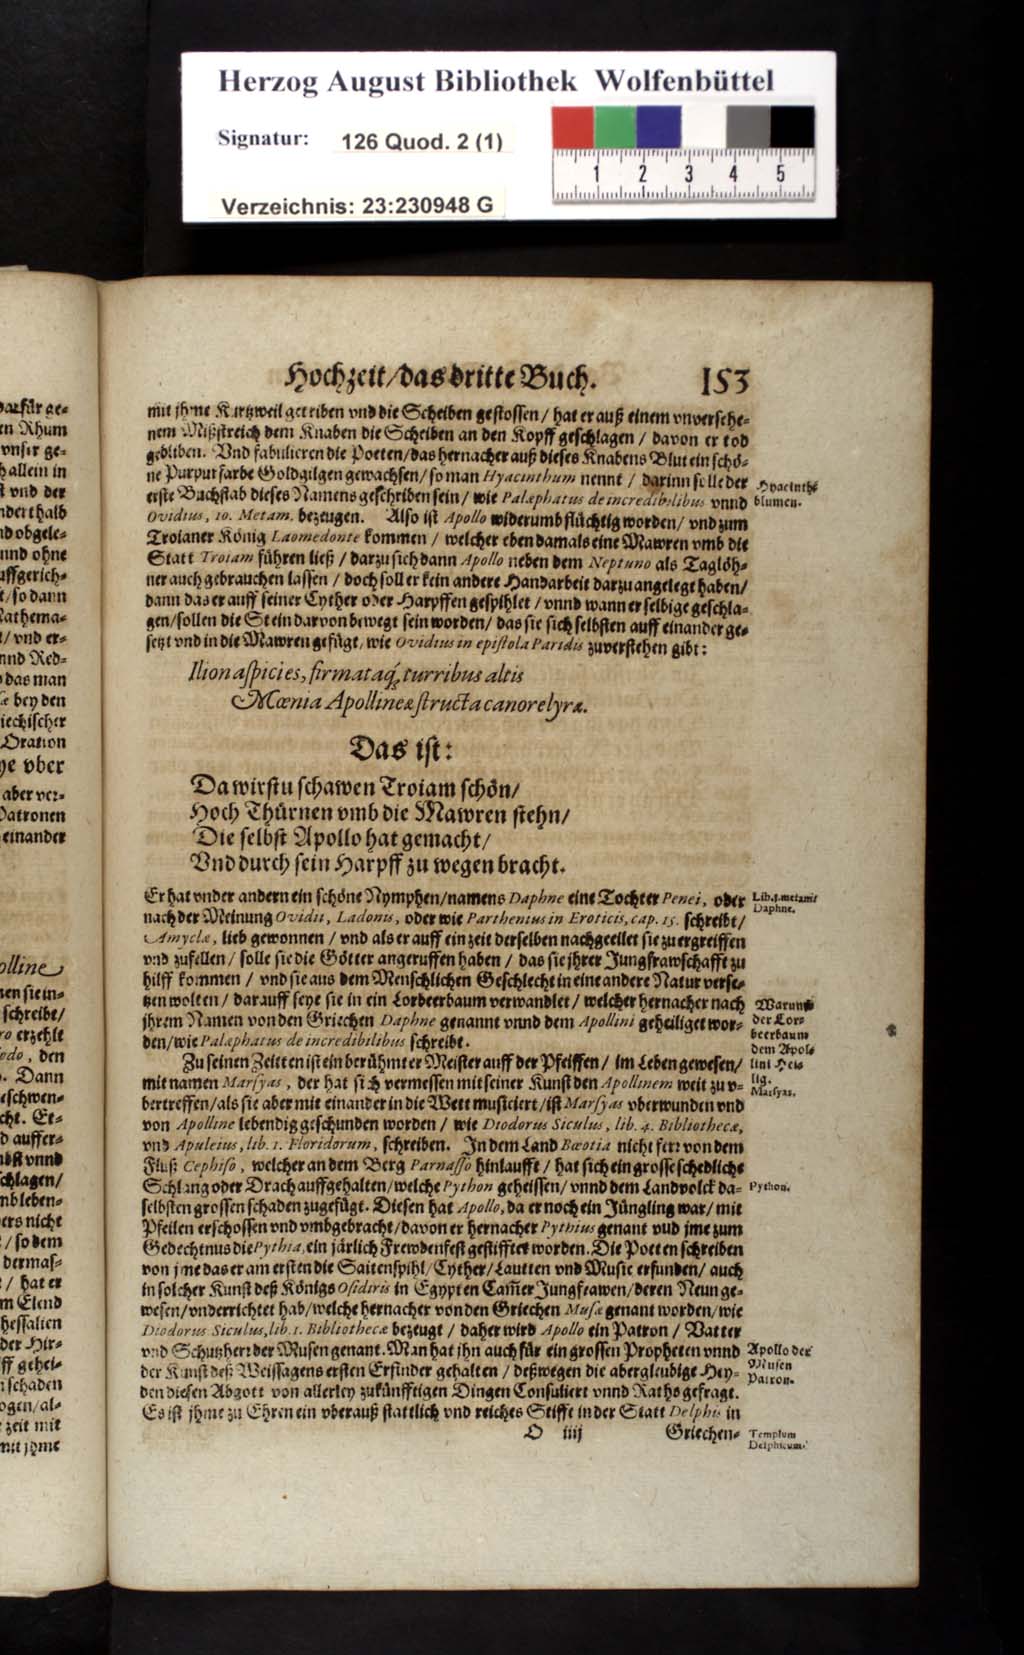 Herzog August Bibliothek Wolfenbüttel
Signatur: 126 Quod. 2 (1)
1 2 3 4 5
Verzeichnis: 23:230948 G
Hochzeit/das dritte Buch. 153
mit jhme Kurtzweil getriben vnd die Scheiben gestossen/ hat er auß einem vnversehe⸗
nem Mißstreich dem Knaben die Scheiben an den Kopff geschlagen / davon er tod
gebliben. Vnd fabulieren die Poeten/das hernacher auß dieses Knabens Blut ein schö⸗
ne Purpurfarbe Goldgilgen gewachsen/so man Hyacinthum nennt / darinn solle der
erste Buchstab dieses Namens geschriben sein/ wie Palæphatus de incredibilibus vnnd
Ovidius, 10. Metam. bezeugen. Also ist Apollo widerumb flüchtig worden/ vnd zum
Troianer König Laomedonte kommen / welcher eben damals eine Mawren vmb die
Statt Troiam führen ließ / darzu sich dann Apollo neben dem Neptuno als Taglöh⸗
ner auch gebrauchen lassen / doch soll er kein andere Handarbeit darzu angelegt haben/
dann das er auff seiner Cyther oder Harpffen gespihlet / vnnd wann er selbige geschla⸗
gen/sollen die Stein darvon bewegt sein worden/ das sie sich selbsten auff einander ge⸗
setzt vnd in die Mawren gefügt, wie Ovidius in epistola Paridis zuverstehen gibt:
Hyacinth⸗
blumen.
Ilion aspicies, firmataq́; turribus altis
Mœnia Apollineæ structa canore lyræ.
Das ist:
Da wirstu schawen Troiam schön/
Hoch Thürnen vmb die Mawren stehn/
Die selbst Apollo hat gemacht/
Vnd durch sein Harpff zu wegen bracht.
Er hat vnder andern ein schöne Nymphen/namens Daphne eine Tochter Penei, oder
nach der Meinung Ovidii, Ladonis, oder wie Parthenius in Eroticis, cap. 15. schreibt/
Amyclæ, lieb gewonnen / vnd als er auff ein zeit derselben nachgeeilet sie zu ergreiffen
vnd zufellen / solle sie die Götter angeruffen haben / das sie jhrer Jungfrawschafft zu
hilff kommen / vnd sie aus dem Menschlichen Geschlecht in eine andere Natur verse⸗
tzen wolten / darauff seye sie in ein Lorbeerbaum verwandlet / welcher hernacher nach
jhrem Namen von den Griechen Daphne genannt vnnd dem Apollini geheiliget wor⸗
den/wie Palæphatus de incredibilibus schreibt.
Lib. 1. metam
Daphne.
Warumb
der Lor⸗
beerbaum
dem Apol⸗
lini Hei⸗
lig.
Zu seinen Zeitten ist ein berühmter Meister auff der Pfeiffen / im Leben gewesen/
mit namen Marsyas, der hat sich vermessen mit seiner Kunst den Apollinem weit zu v⸗
bertreffen/als sie aber mit einander in die Wett musiciert/ist Marsyas vberwunden vnd
von Apolline lebendig geschunden worden / wie Diodorus Siculus, lib. 4. Bibliothecæ,
vnd Apuleius, lib. 1. Floridorum, schreiben. In dem Land Bœotia nicht ferr von dem
Fluß Cephiso, welcher an dem Berg Parnasso hinlaufft / hat sich ein grosse schedliche
Schlang oder Drach auffgehalten/welche Python geheissen/ vnnd dem Landvolck da⸗
selbsten grossen schaden zugefügt. Diesen hat Apollo, da er noch ein Jüngling war/ mit
Pfeilen erschossen vnd vmbgebracht/davon er hernacher Pythius genant vnd jme zum
Gedechtnus die Pythia, ein järlich Frewdenfest gestifftet worden. Die Poeten schreiben
von jme das er am ersten die Saitenspihl/Cyther/Lautten vnd Music erfunden/ auch
in solcher Kunst deß Königs Osidiris in Egypten Cam̃er Jungfrawen/deren Neun ge⸗
wesen/vnderrichtet hab/welche hernacher von den Griechen Musæ genant worden/wie
Diodorus Siculus, lib. 1. Bibliothecæ bezeugt / daher wird Apollo ein Patron / Vatter
vnd Schutzherr der Musen genant. Man hat jhn auch für ein grossen Propheten vnnd
der Kunst deß Weissagens ersten Erfinder gehalten / deßwegen die abergleubige Hey⸗
den diesen Abgott von allerley zukünfftigen Dingen Consuliert vnnd Raths gefragt.
Es ist jhme zu Ehren ein vberauß stattlich vnd reiches Stifft in der Statt Delphis in
Marsyas.
Python.
Apollo der
Musen
Patron.
Templum
Delphicum.
O iiij Griechen⸗